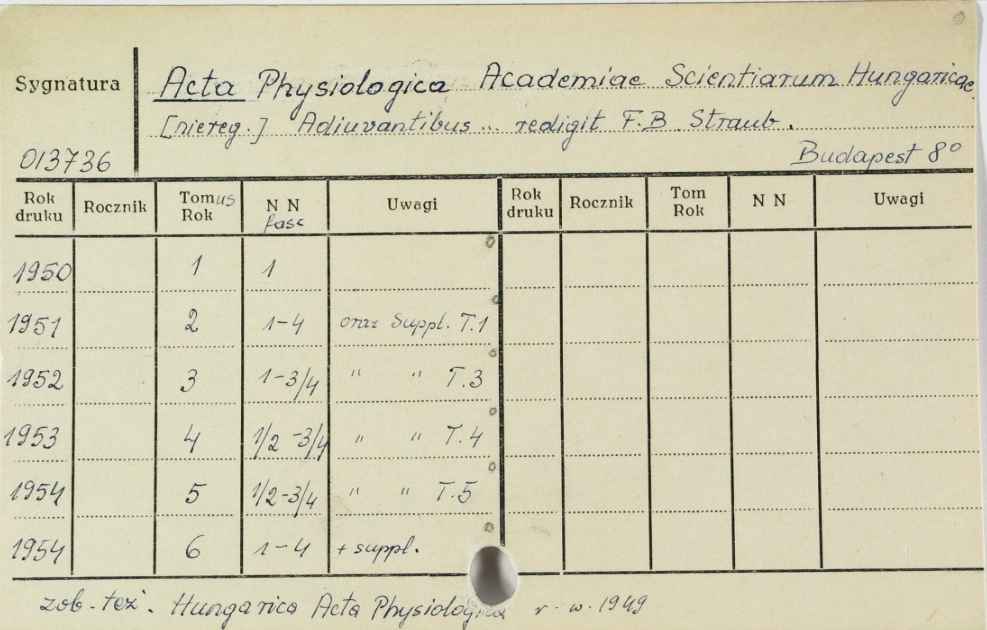 Sygnatura Acta Physiologica Academiae Scientiarum Hungaricae
[niereg.] Adiuvantibus... redigit F.B. Straub.
013736 Budapest 8°
Rok druku Rocznik Tomus Rok N N fasc Uwagi Rok druku Rocznik Tom Rok N N Uwagi
1950 1 1
1951 2 1-4 oraz Suppl. T.1
1952 3 1-3/4 " " T.3
1953 4 1/2-3/4 " " T.4
1954 5 1/2-3/4 " " T.5
1954 6 1-4 + suppl.
zob. też. Hungarica Acta Physiologica 1949